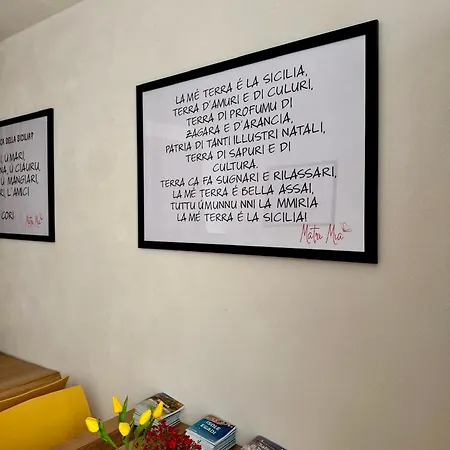 CA DELLA SICILIA?
Ú MARI,
Ú CIAURU,
Ú MANGIARI,
L'AMICI
CORI
Matri Mia
LA MÉ TERRA É LA SICILIA,
TERRA D'AMURI E DI CULURI,
TERRA DI PROFUMU DI
ZAGARA E D'ARANCIA,
PATRIA DI TANTI ILLUSTRI NATALI,
TERRA DI SAPURI E DI
CULTURA.
TERRA CA FA SUGNARI E RILASSARI,
LA MÉ TERRA É BELLA ASSAI,
TUTTU ÚMUNNU NNI LA MMIRIA
LA MÉ TERRA É LA SICILIA!
Matri Mia
ISOLE
EGADI